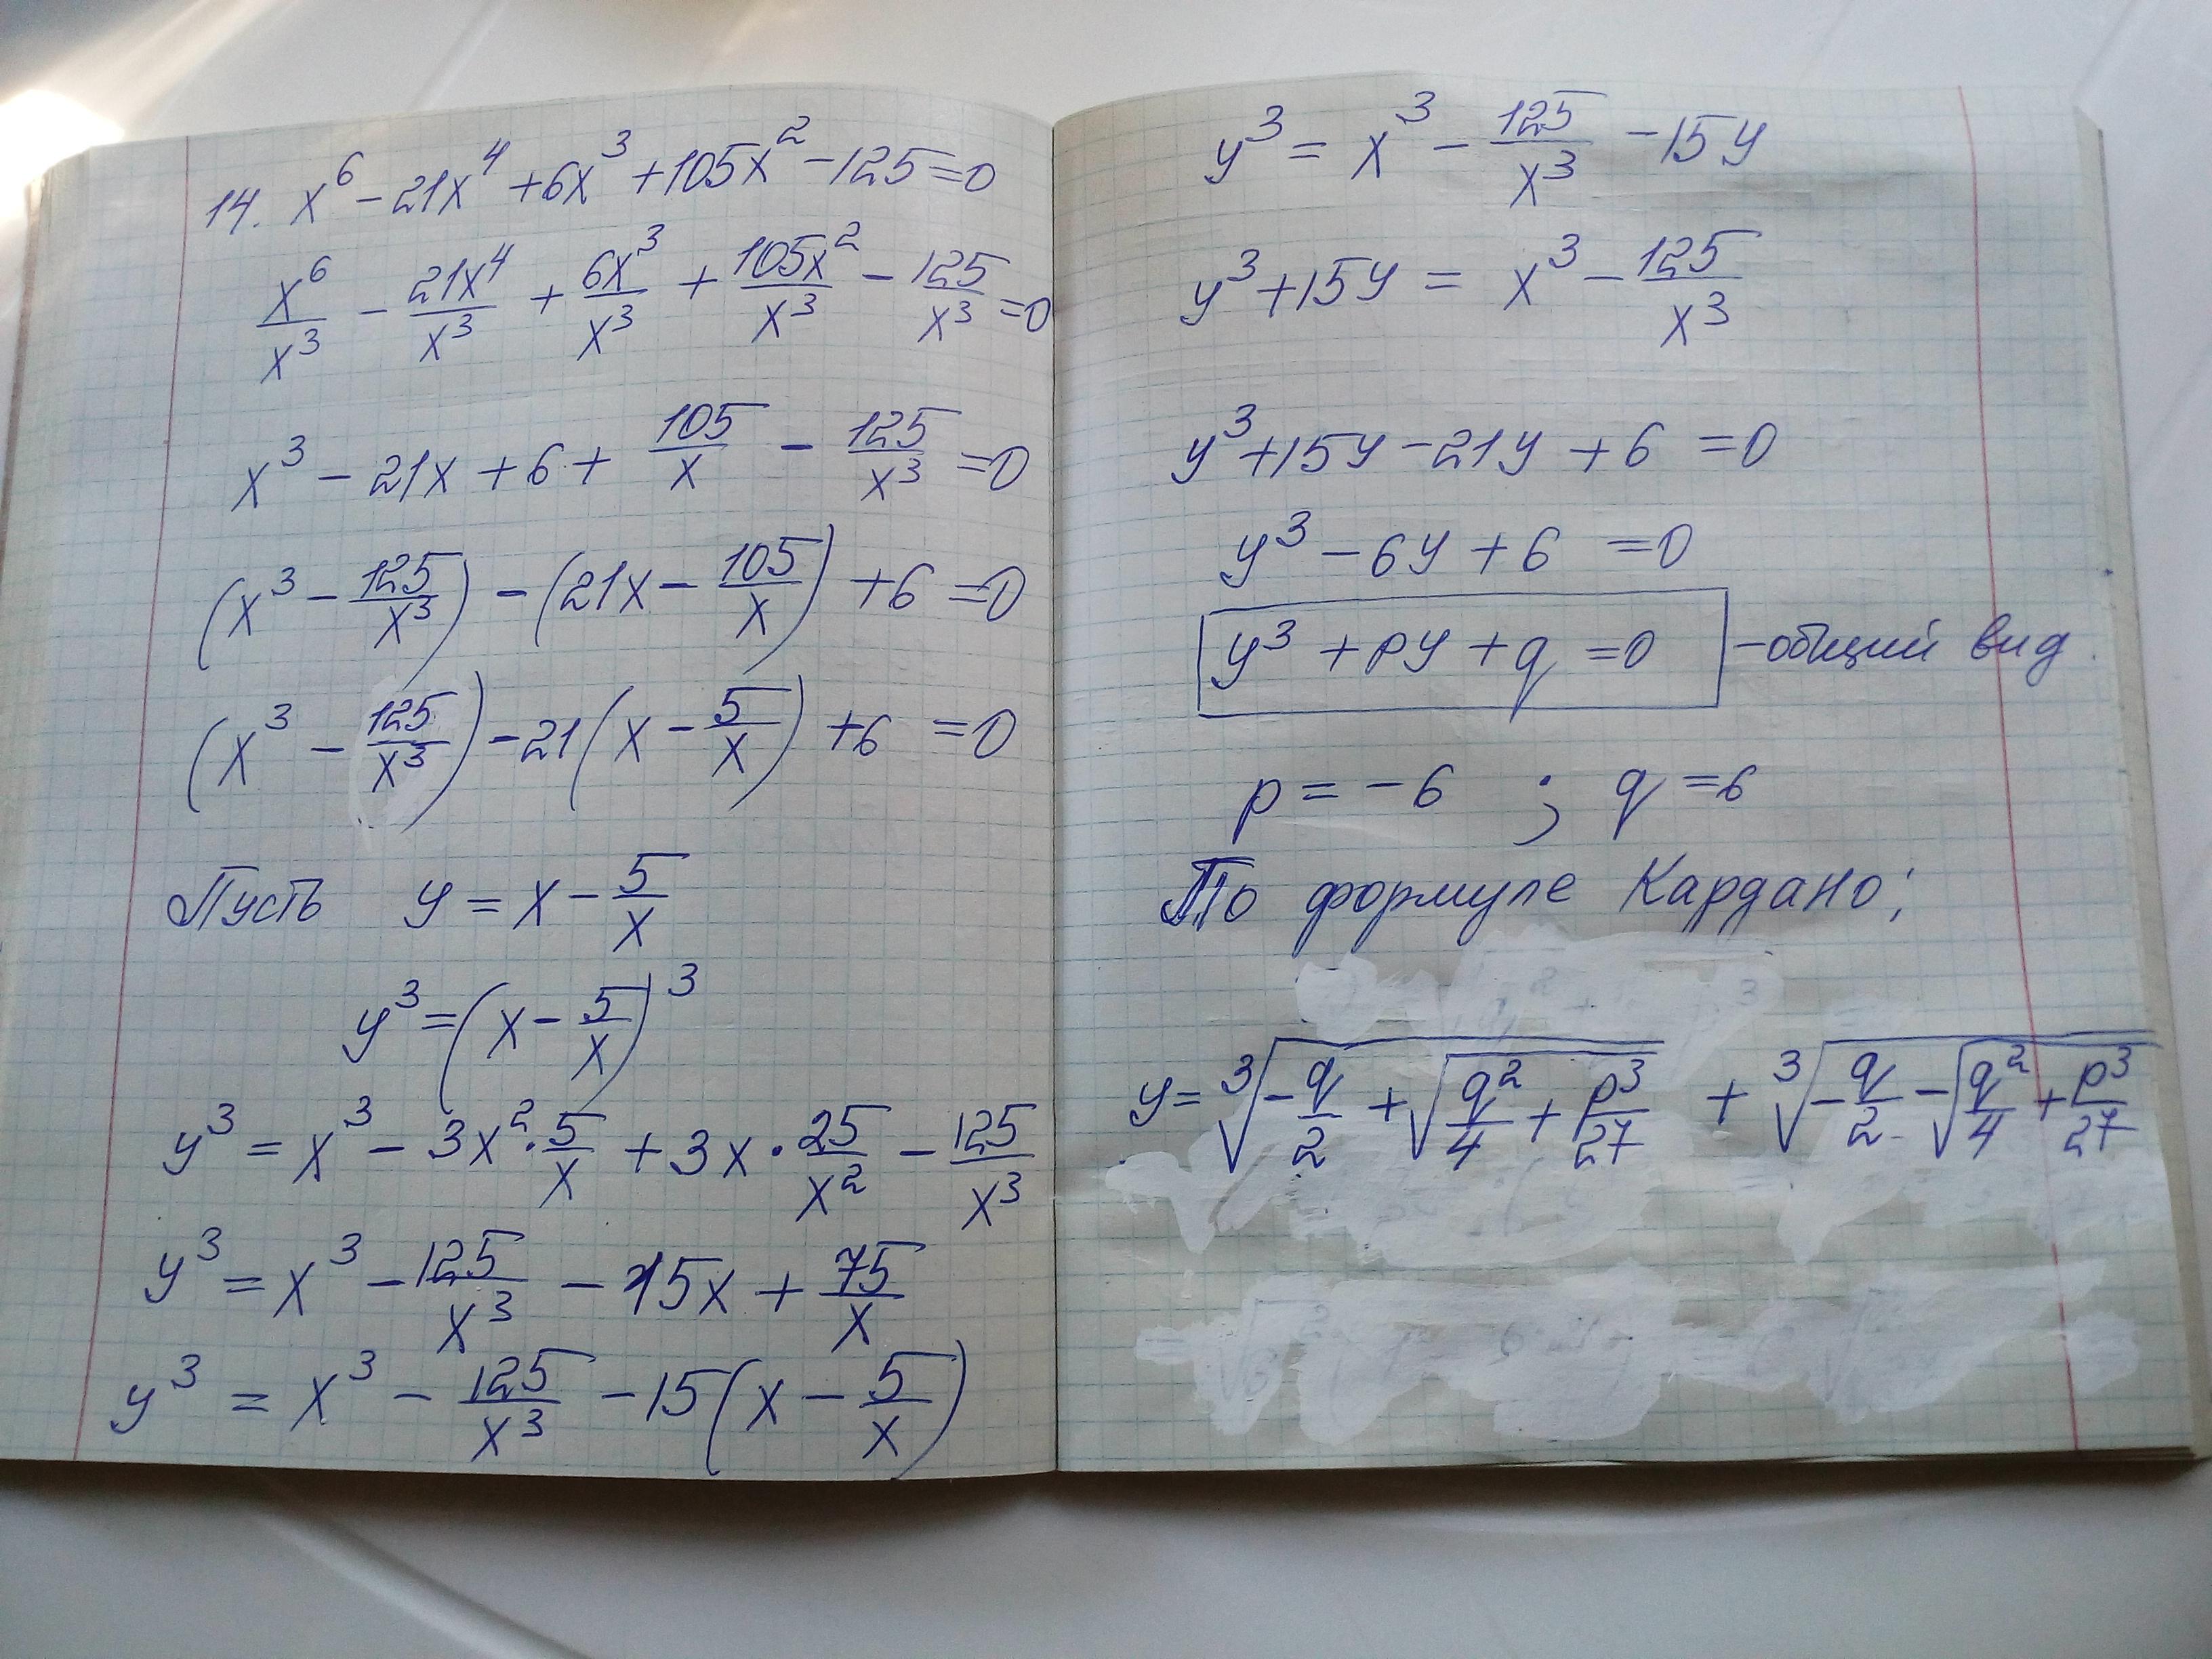 14. x⁶ - 21x⁴ + 6x³ + 105x² - 125 = 0
x⁶/x³ - 21x⁴/x³ + 6x³/x³ + 105x²/x³ - 125/x³ = 0
x³ - 21x + 6 + 105/x - 125/x³ = 0
(x³ - 125/x³) - (21x - 105/x) + 6 = 0
(x³ - 125/x³) - 21(x - 5/x) + 6 = 0
Пусть y = x - 5/x
y³ = (x - 5/x)³
y³ = x³ - 3x² · 5/x + 3x · 25/x² - 125/x³
y³ = x³ - 125/x³ - 15x + 75/x
y³ = x³ - 125/x³ - 15(x - 5/x)
y³ = x³ - 125/x³ - 15y
y³ + 15y = x³ - 125/x³
y³ + 15y - 21y + 6 = 0
y³ - 6y + 6 = 0
y³ + py + q = 0 - общий вид.
p = -6 ; q = 6
По формуле Кардано:
y = ∛(-q/2 + √(q²/4 + p³/27)) + ∛(-q/2 - √(q²/4 + p³/27))